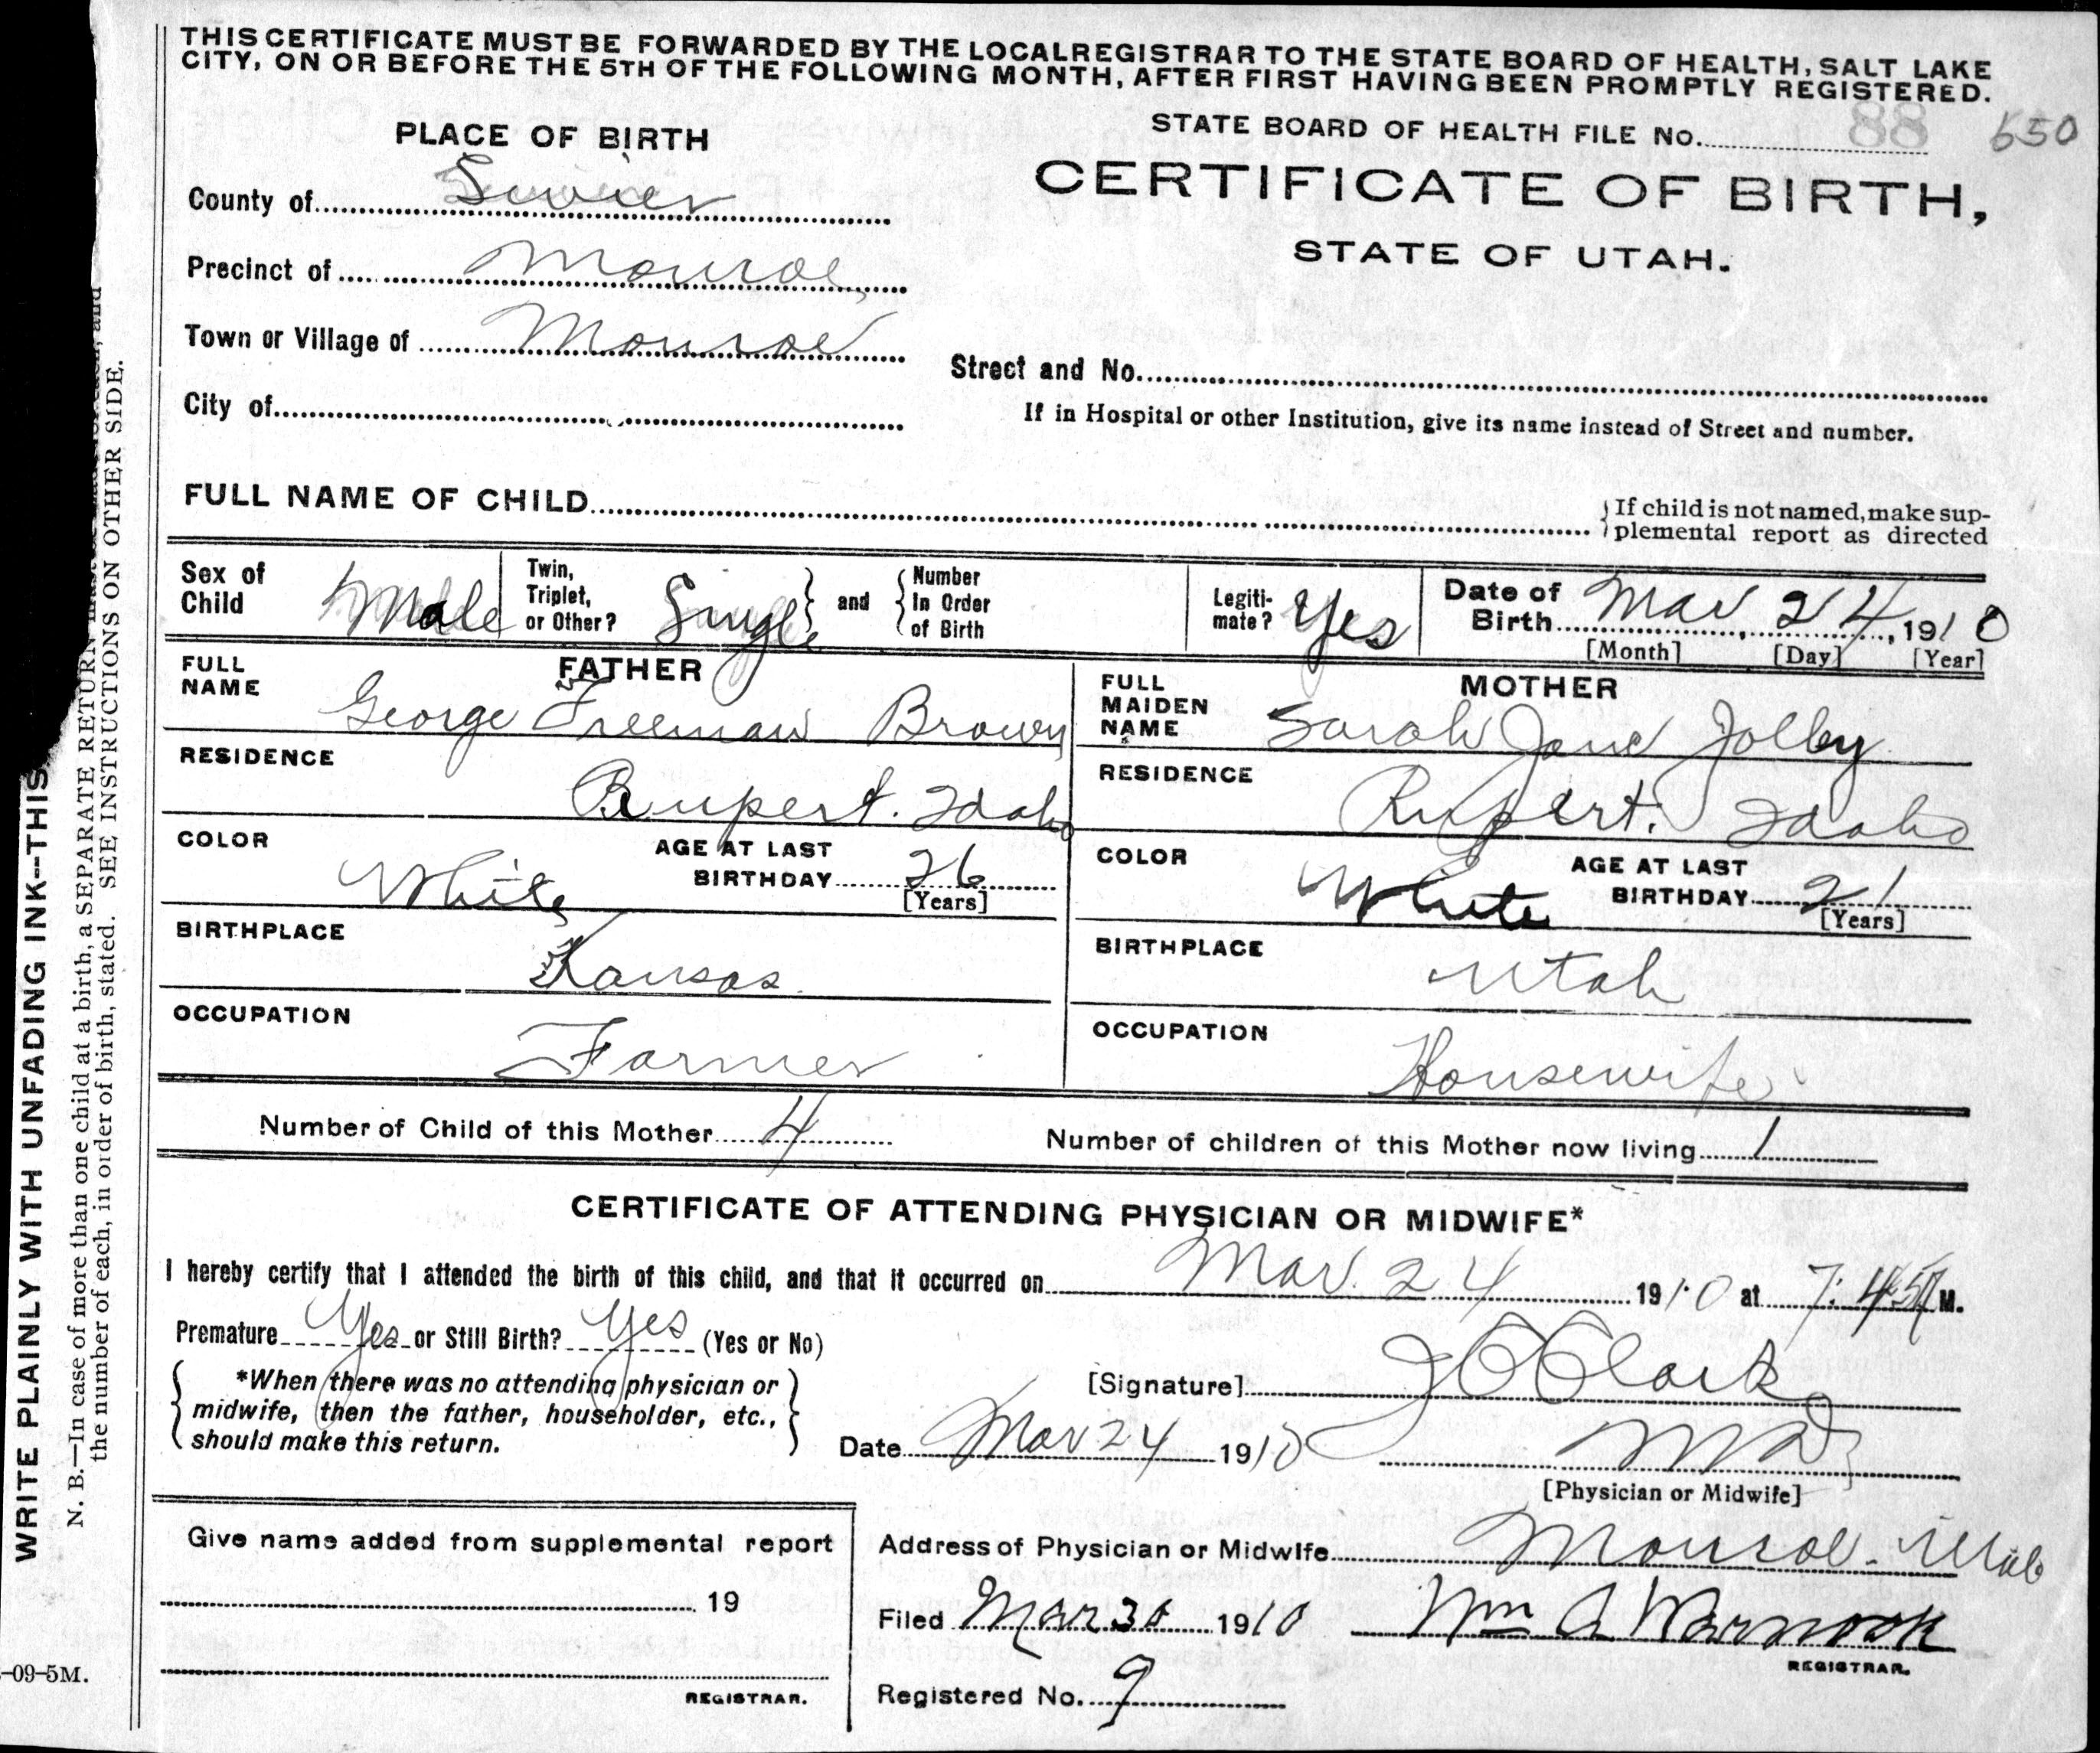 THIS CERTIFICATE MUST BE FORWARDED BY THE LOCAL REGISTRAR TO THE STATE BOARD OF HEALTH, SALT LAKE
CITY, ON OR BEFORE THE 5TH OF THE FOLLOWING MONTH, AFTER FIRST HAVING BEEN PROMPTLY REGISTERED.
STATE BOARD OF HEALTH FILE No. 88 550
PLACE OF BIRTH
CERTIFICATE OF BIRTH,
STATE OF UTAH.
County of Sevier
Precinct of Monroe,
Town or Village of Monroe
Street and No.
City of
If in Hospital or other Institution, give its name instead of Street and number.
FULL NAME OF CHILD
{If child is not named, make sup-
plemental report as directed
Sex of Child Male
Twin, Triplet, or Other? Single } and { Number In Order of Birth
Legiti-mate? Yes
Date of Birth Mar 24, 1910
[Month] [Day] [Year]
FATHER
FULL NAME George Freeman Brown
RESIDENCE Rupert. Idaho
COLOR White
AGE AT LAST BIRTHDAY 26
[Years]
BIRTHPLACE Kansas
OCCUPATION Farmer
MOTHER
FULL MAIDEN NAME Sarah Jane Jolley
RESIDENCE Rupert. Idaho
COLOR White
AGE AT LAST BIRTHDAY 21
[Years]
BIRTHPLACE Utah
OCCUPATION Housewife
Number of Child of this Mother 4
Number of children of this Mother now living 1
CERTIFICATE OF ATTENDING PHYSICIAN OR MIDWIFE*
I hereby certify that I attended the birth of this child, and that it occurred on Mar. 24 1910 at 7:45 M.
Premature Yes or Still Birth? Yes (Yes or No)
{ *When there was no attending physician or
midwife, then the father, householder, etc., }
should make this return.
[Signature] Clark
Date Mar 24 1910
MD
[Physician or Midwife]
Give name added from supplemental report
19
REGISTRAR.
Address of Physician or Midwife Monroe. Utah
Filed Mar 30 1910 Wm A Warnock
REGISTRAR.
Registered No. 9
WRITE PLAINLY WITH UNFADING INK--THIS
N. B.—In case of more than one child at a birth, a SEPARATE RETURN
the number of each, in order of birth, stated. SEE INSTRUCTIONS ON OTHER SIDE.
-09-5M.